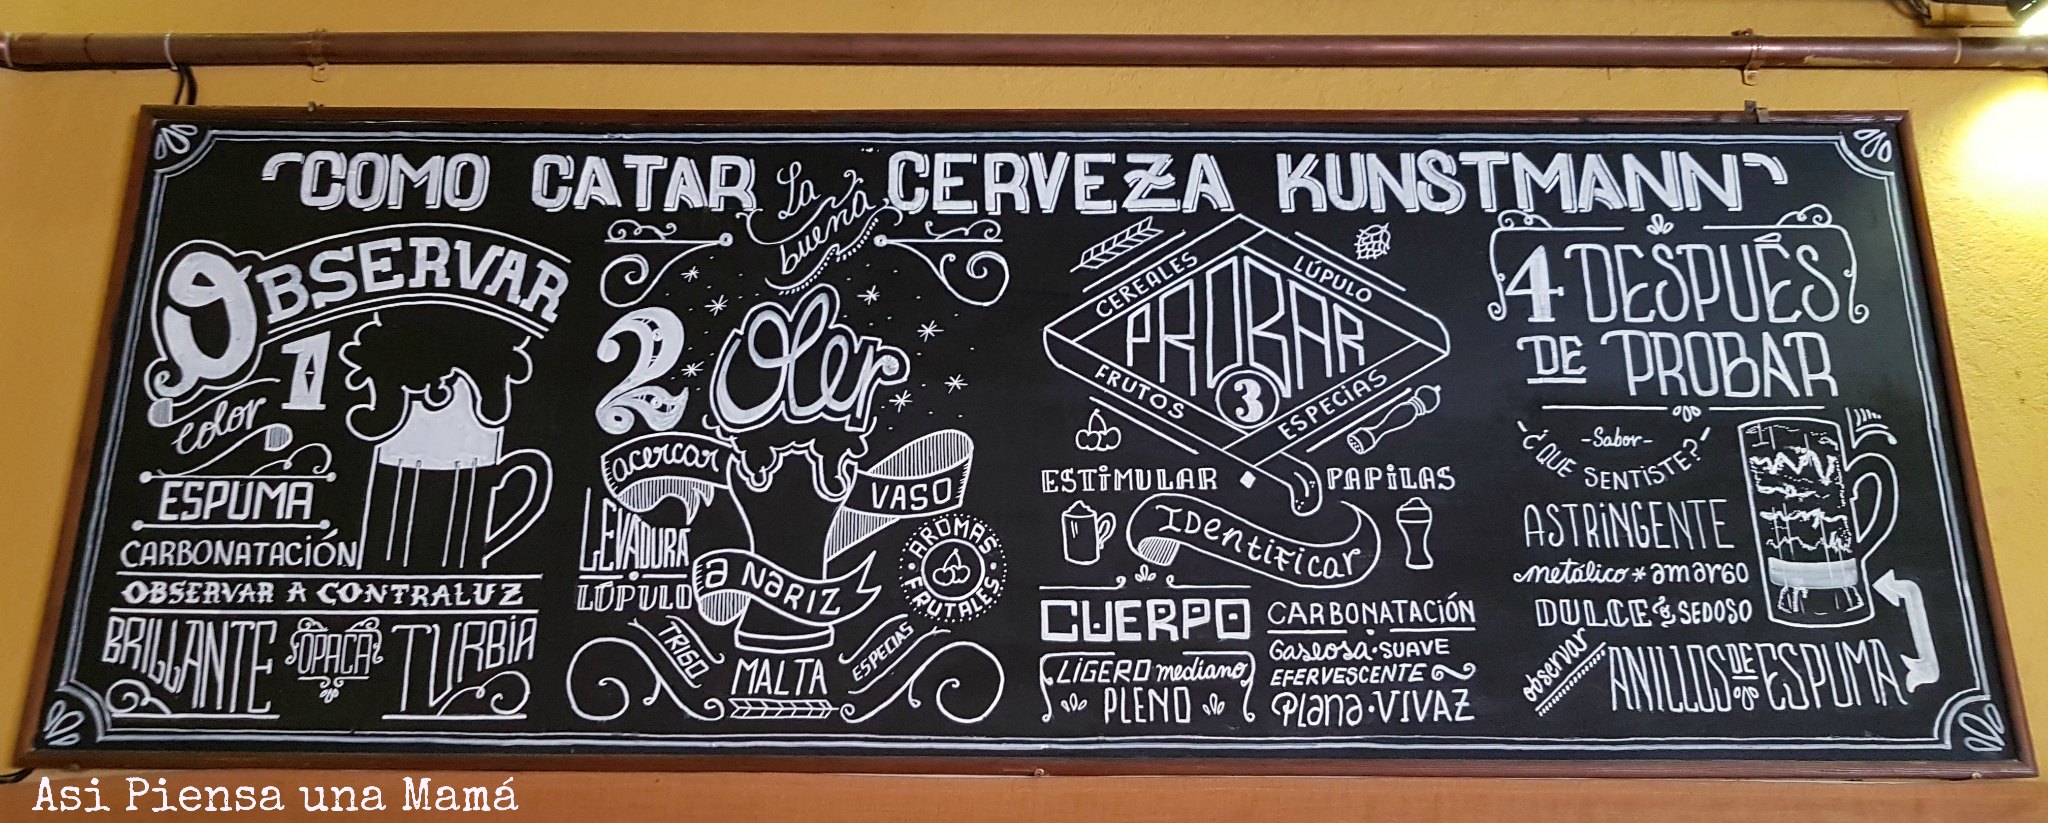 COMO CATAR La buena CERVEZA KUNSTMANN
OBSERVAR
1
color
ESPUMA
CARBONATACIÓN
OBSERVAR A CONTRALUZ
BRILLANTE OPACA TURBIA
2 Oler
acercar
VASO
a NARIZ
LEVADURA
LÚPULO
AROMAS
FRUTALES
TRIGO
MALTA
ESPECIAS
CEREALES
LÚPULO
PROBAR
3
FRUTOS
ESPECIAS
ESTIMULAR PAPILAS
IDentificar
CUERPO
LIGERO mediano
PLENO
CARBONATACIÓN
Gaseosa · SUAVE
EFERVESCENTE
Plana · VIVAZ
4 DESPUÉS
DE PROBAR
-Sabor-
¿QUE SENTISTE?
ASTRINGENTE
metálico * amargo
DULCE & SEDOSO
observar
ANILLOS DE ESPUMA
Asi Piensa una Mamá